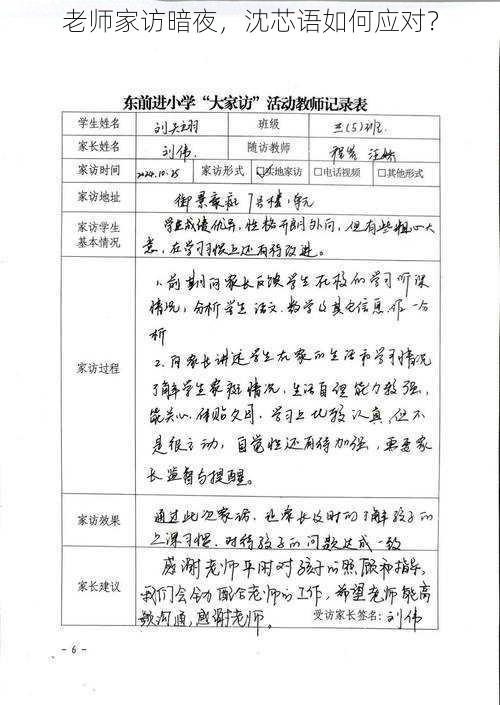 老师家访暗夜，沈芯语如何应对？
东前进小学“大家访”活动教师记录表
学生姓名 刘天翔 班级 三(5)班
家长姓名 刘伟 随访教师
家访时间 2024.10.25 家访形式 ☑实地家访 □电话视频 □其他形式
家访地址 御景家庭 7号楼1单元
家访学生 学生成绩优异，性格开朗外向，但有些粗心大
基本情况 意，在学习习惯上还有待改进。
家访过程
1.前期向家长反馈学生在校的学习听课
情况，分析学生语文、数学及其它信息，作一分
析
2.向家长讲述学生在家的生活和学习情况
了解学生家庭情况，生活自理能力较强，
能关心、体贴父母，学习上比较认真，但不
是很主动，自觉性还有待加强，需要家
长监督与提醒。
家访效果 通过此次家访，让家长及时的了解孩子的
上课习惯，对待孩子的问题达成一致
家长建议 感谢老师平时对孩子的照顾和指导，
我们会全力配合老师的工作，希望老师能高
频沟通，感谢老师。 受访家长签名：刘伟
- 6 -